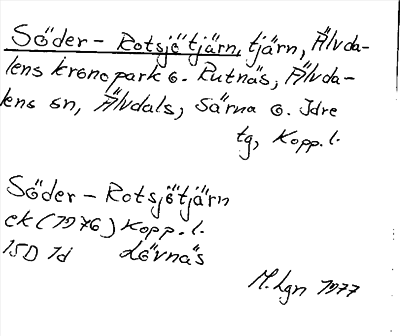 Söder-Rotsjötjärn, tjärn, Älvda-
lens kronopark o. Rutnäs, Älvda-
lens sn, Älvdals, Särna o. Idre
tg, Kopp.l.
Söder-Rotsjötjärn
ek (1976) Kopp.l.
15D 7d Lövnäs
M.Lgn 1977